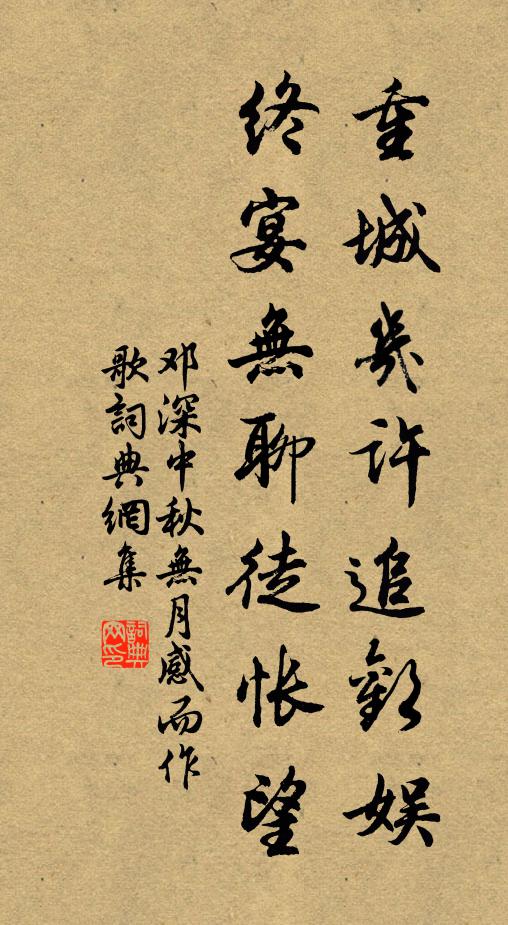 重城幾許追歡娛
終宴無聊徒悵望
邓深中秋無月感而作
歌詞典網集
詞典网印